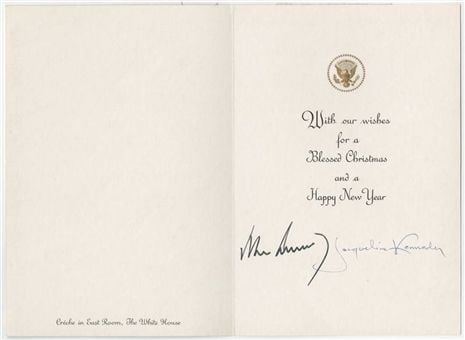 Crèche in East Room, The White House
With our wishes
for a
Blessed Christmas
and a
Happy New Year
Jacqueline Kennedy